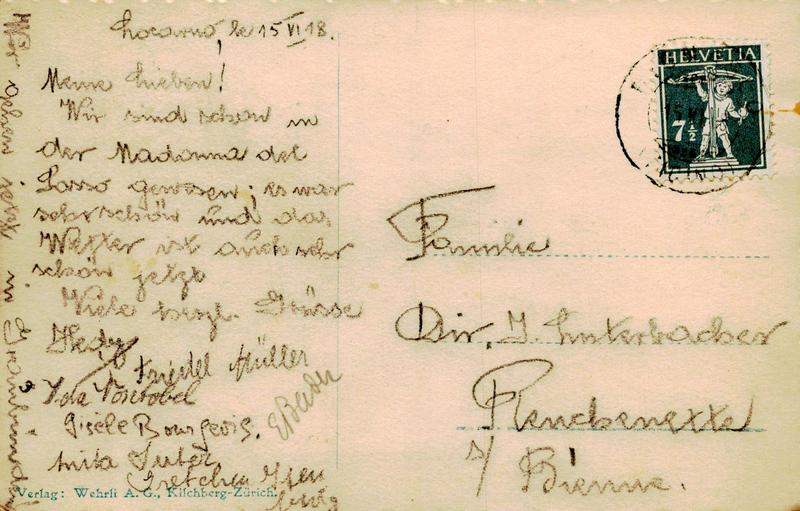 Locarno, le 15 VI 18.
Meine Lieben!
Wir sind schon in
der Madonna del
Sasso gewesen; es war
sehr schön und das
Wetter ist auch sehr
schön jetzt
Viele herzl. Grüsse
Hedy
Friedel Müller
Ida
Gisèle Bourgeois.
E Bader
Anita Suter
Gretchen
Wir gehen jetzt in
Verlag: Wehrli A. G., Kilchberg-Zürich.
HELVETIA
7½
Familie
Dir. J. Luterbacher
Reuchenette
s/ Bienne.